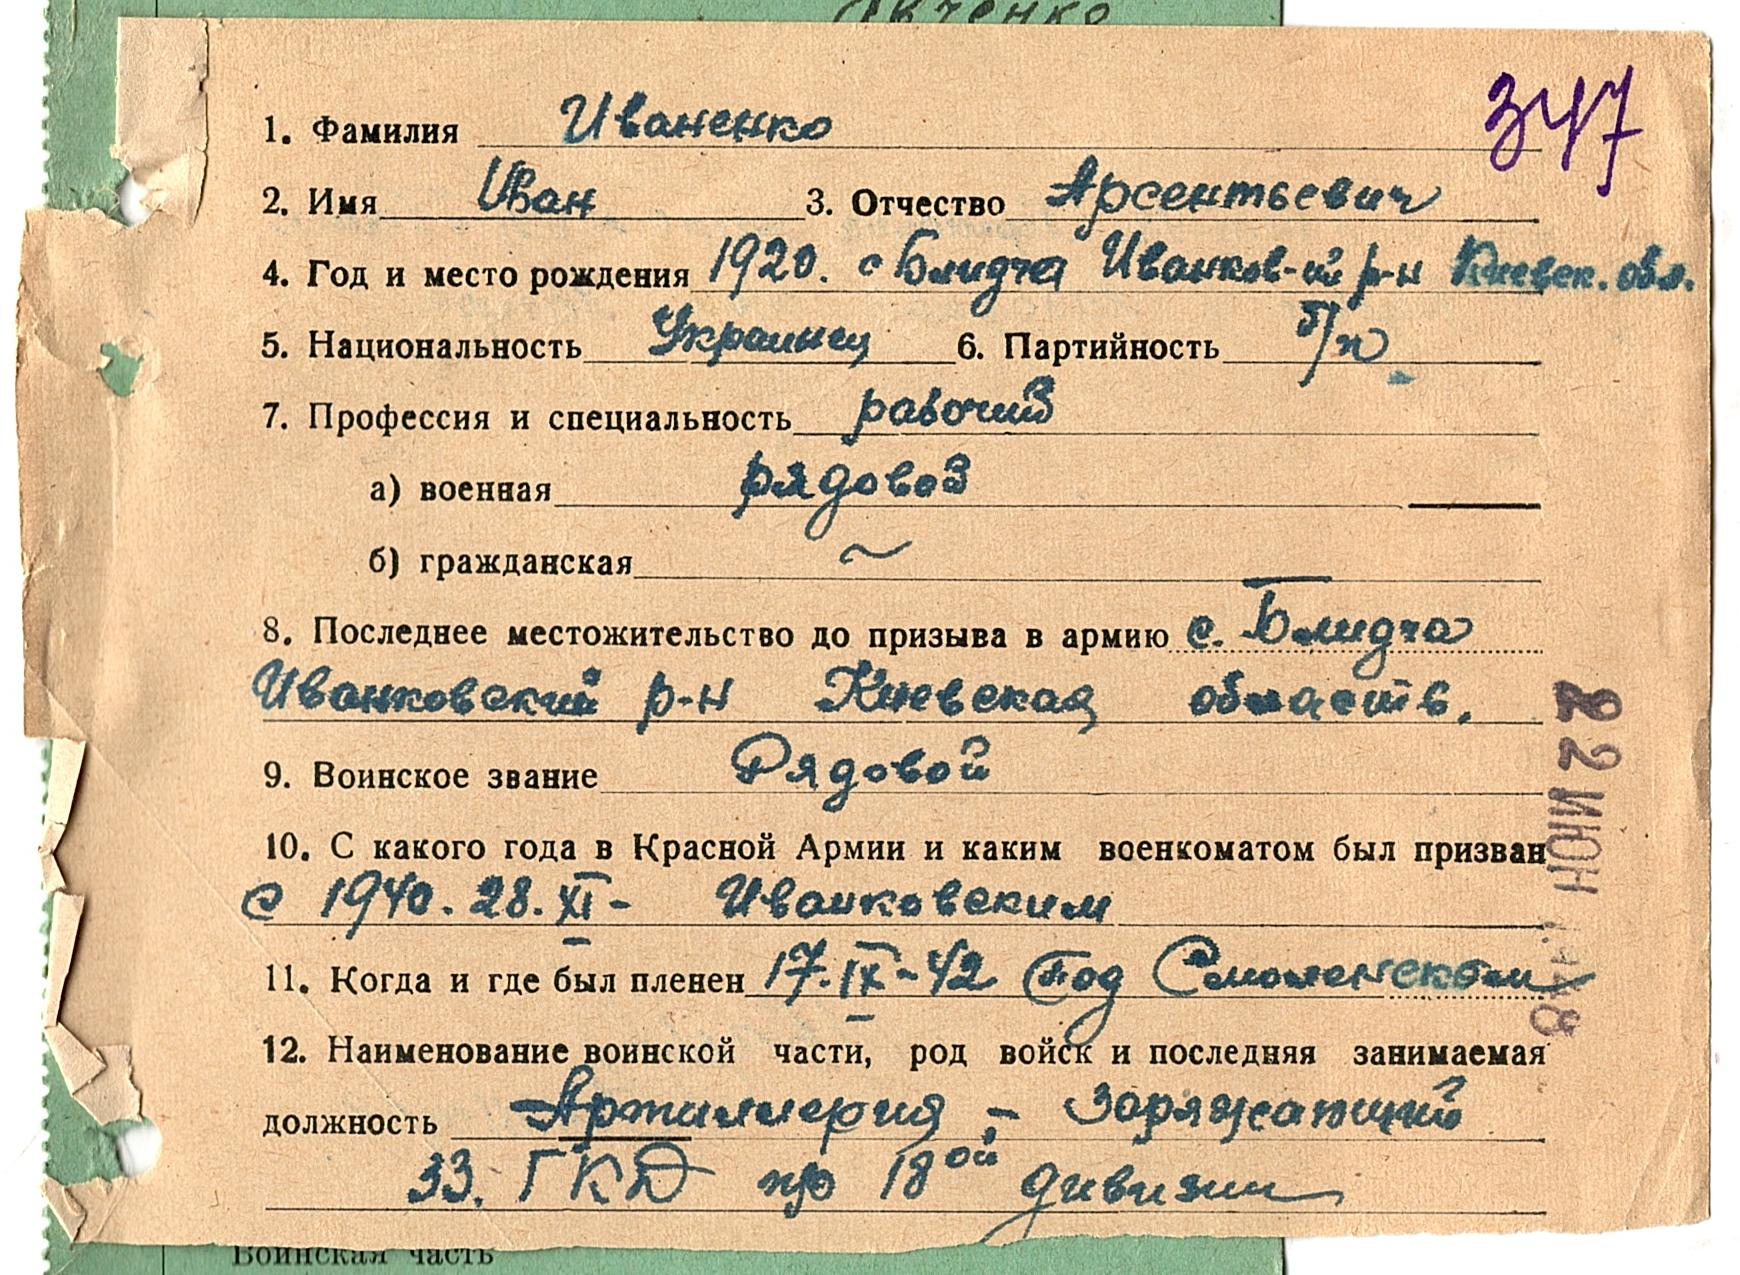 вченко
347
1. Фамилия Иваненко
2. Имя Иван 3. Отчество Арсентьевич
4. Год и место рождения 1920. с Блидча Иванков-ий р-н Киевск. обл.
5. Национальность Украинец 6. Партийность б/п
7. Профессия и специальность рабочий
а) военная рядовой
б) гражданская ~
8. Последнее местожительство до призыва в армию с. Блидча
Иванковский р-н Киевская область.
9. Воинское звание Рядовой
10. С какого года в Красной Армии и каким военкоматом был призван
с 1940. 28. XI - Иванковским
11. Когда и где был пленен 17. IX - 42 под Смоленском
12. Наименование воинской части, род войск и последняя занимаемая
должность Артиллерия - Заряжающий
33. ГКД 18ой дивизии
22 ИЮН 1948
Воинская часть